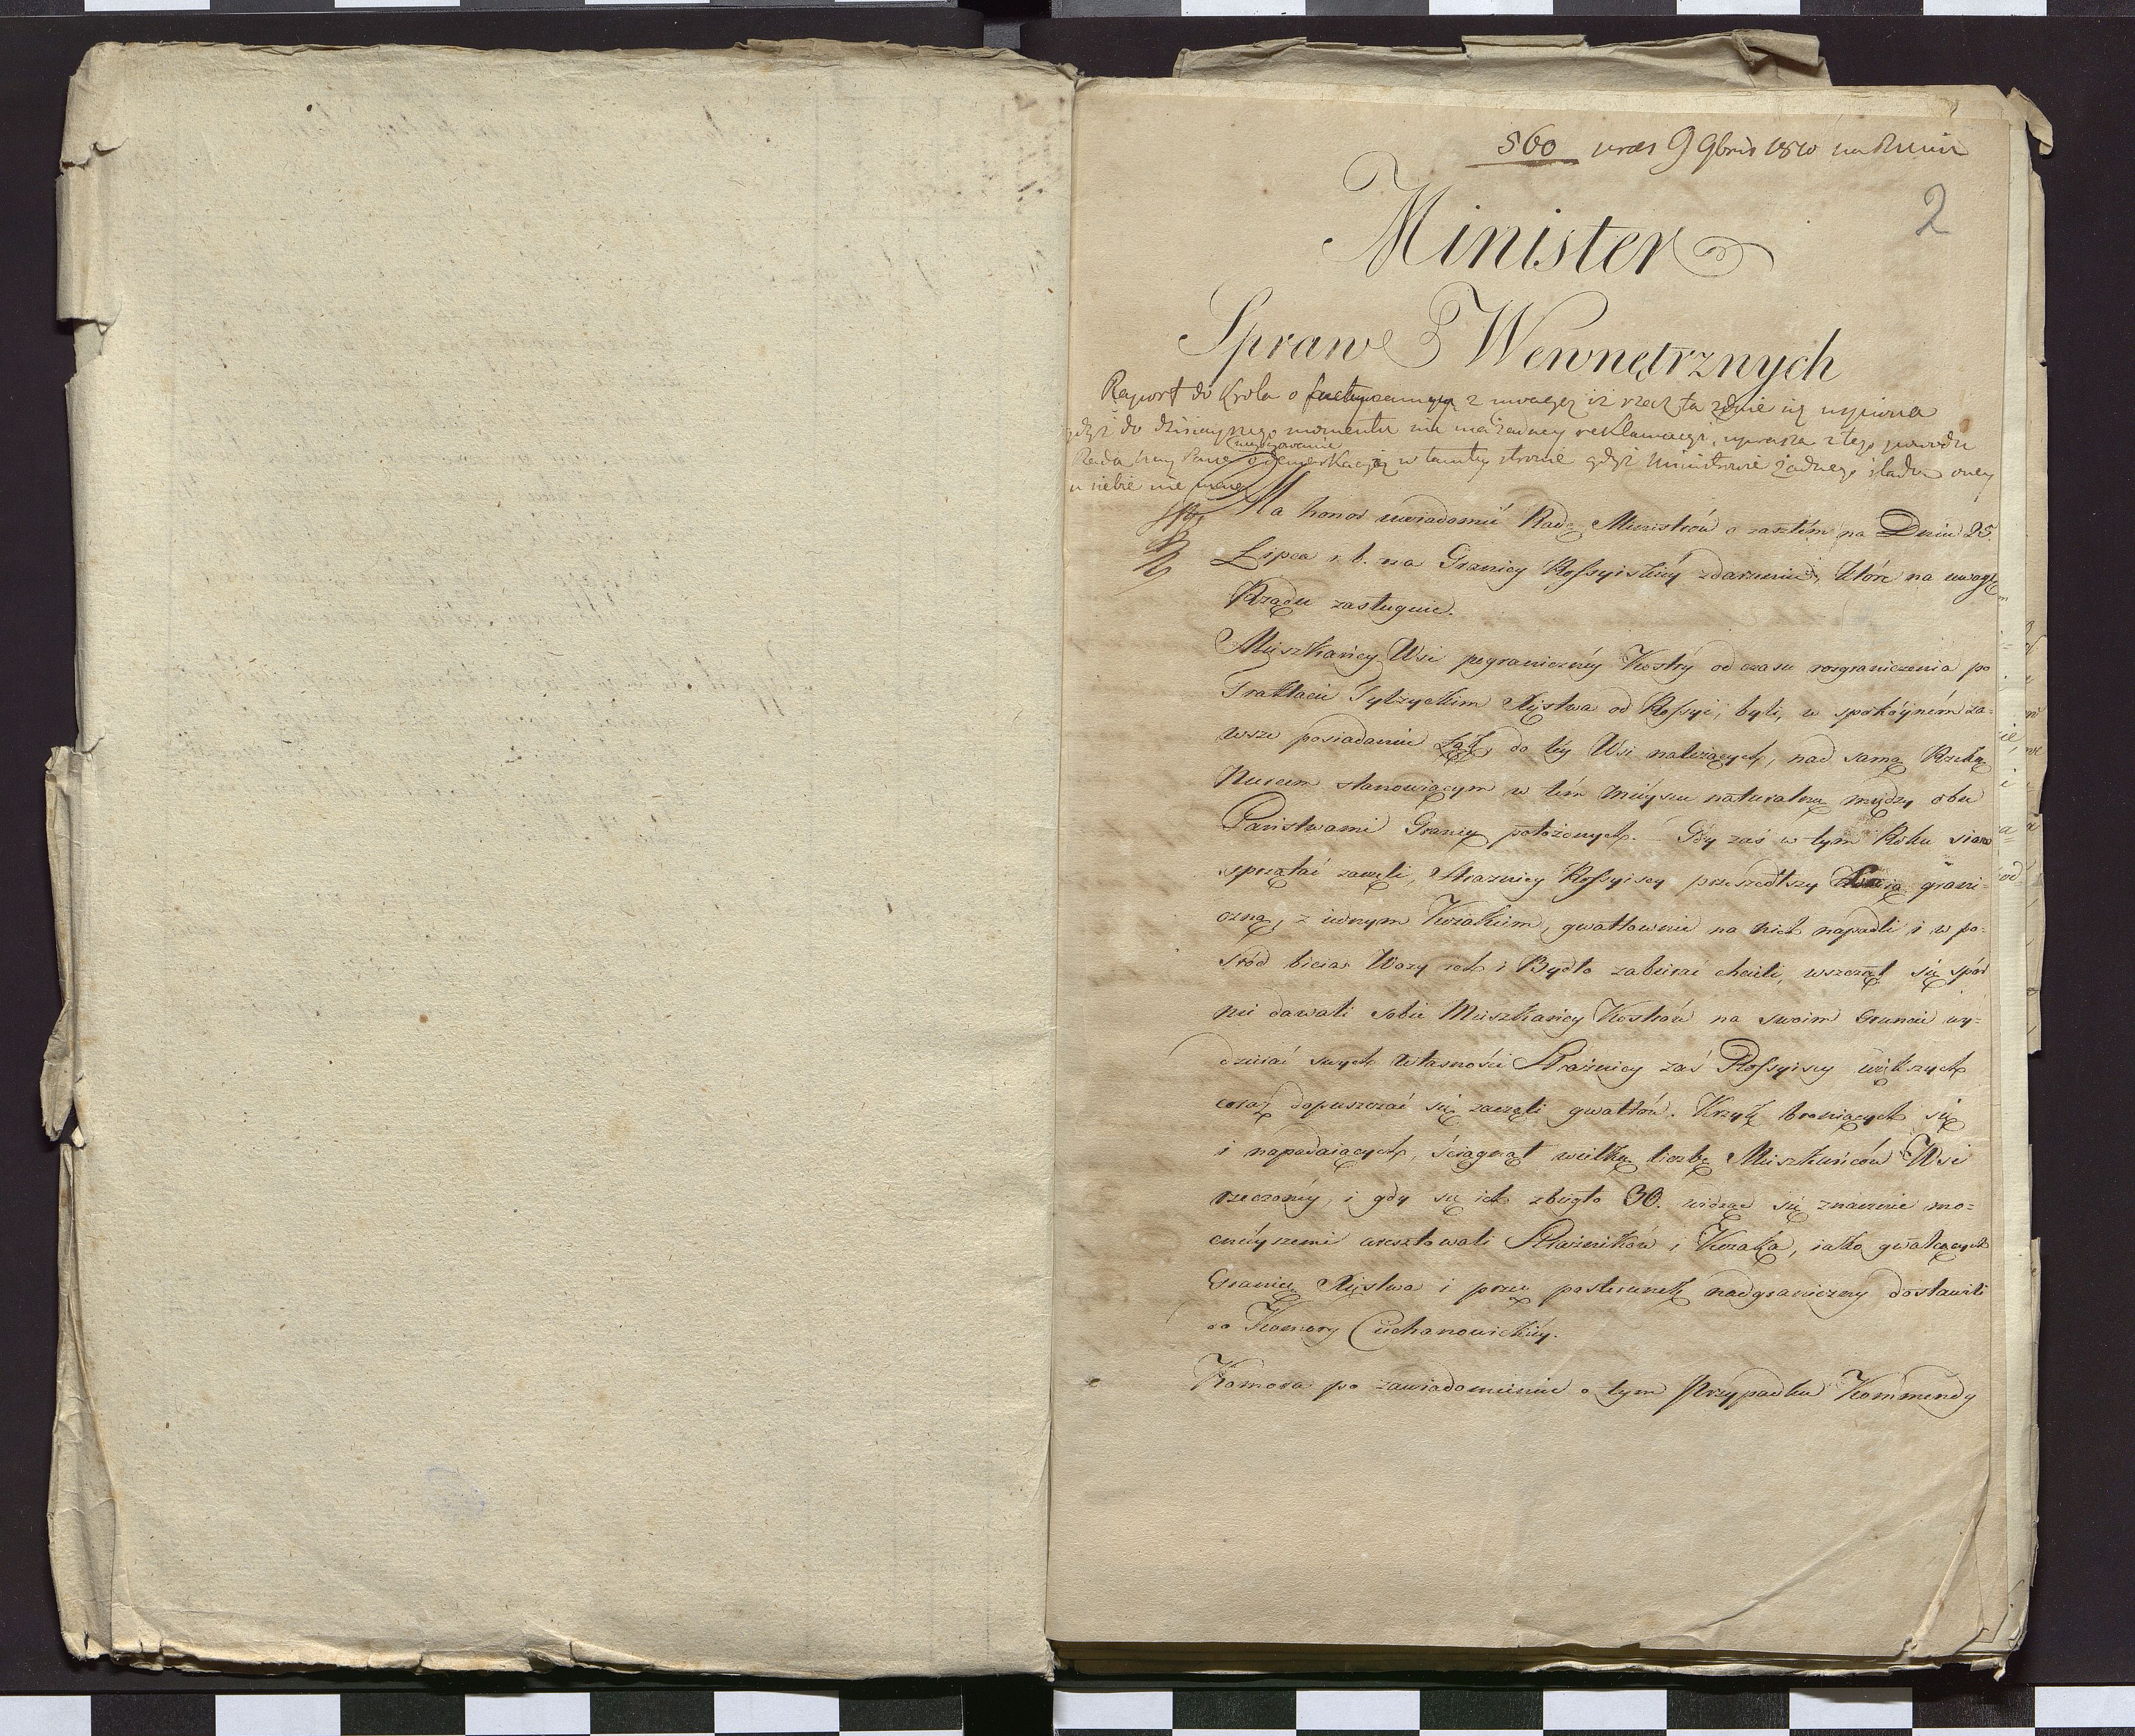 560 9 9bris 1810
2
Minister
Spraw Wewnętrznych
Raport do Krola o z uwagą iż rzecz ta zdaie się
gdyż do dzisieyszego momentu nie ma żadney reklamacyi, uprasza z tego powodu
w tamtey stronie gdyż Ministrowie żadnego śladu oney
u siebie nie
Ma honor uwiadomić Radę Ministrów o zaszłém na Dniu 25.
Lipca r. b. na Granicy Rossyiskiéy zdarzeniu, które na uwagę
Rządu zasługuie.
Mieszkańcy Wsi pograniczney Kostry od czasu rozgraniczenia po
Traktacie Tylżyckim Xięstwa od Rossyi, byli, w spokóyném za-
wsze posiadaniu Łąk, do téy Wsi należących, nad samą Rzeką
Nurcem stanowiącym w tém mieyscu naturalną między obu
Państwami Granicę położonych. Gdy zaś w tym Roku siano
sprzątać zaczęli, Strażnicy Rossyiscy przeszedłszy Linią grani-
czną, z iednym Kozakiem, gwałtownie na nich napadli i w po-
śród bicia Wozy ich i Bydło zabierać chcieli, wszczął się spór
nie dawali sobie Mieszkańcy Kostrów na swoim Gruncie wy-
dzierać swych własności Strażnicy zaś Rossyiscy większych
coraz dopuszczać się zaczęli gwałtów. Krzyk broniących się
i napadaiących, ściągnął wielką liczbę Mieszkańców Wsi
rzeczonéy, i gdy się ich zbiegło 30. widząc się znacznie mo-
cnieyszemi aresztowali Strażników i Kozaka, iako gwałcących
Granice Xięstwa i przez posterunek nadgraniczny dostawili
do Komory Ciechanowieckiéy.
Komora po zawiadomieniu o tym Przypadku Kommendy